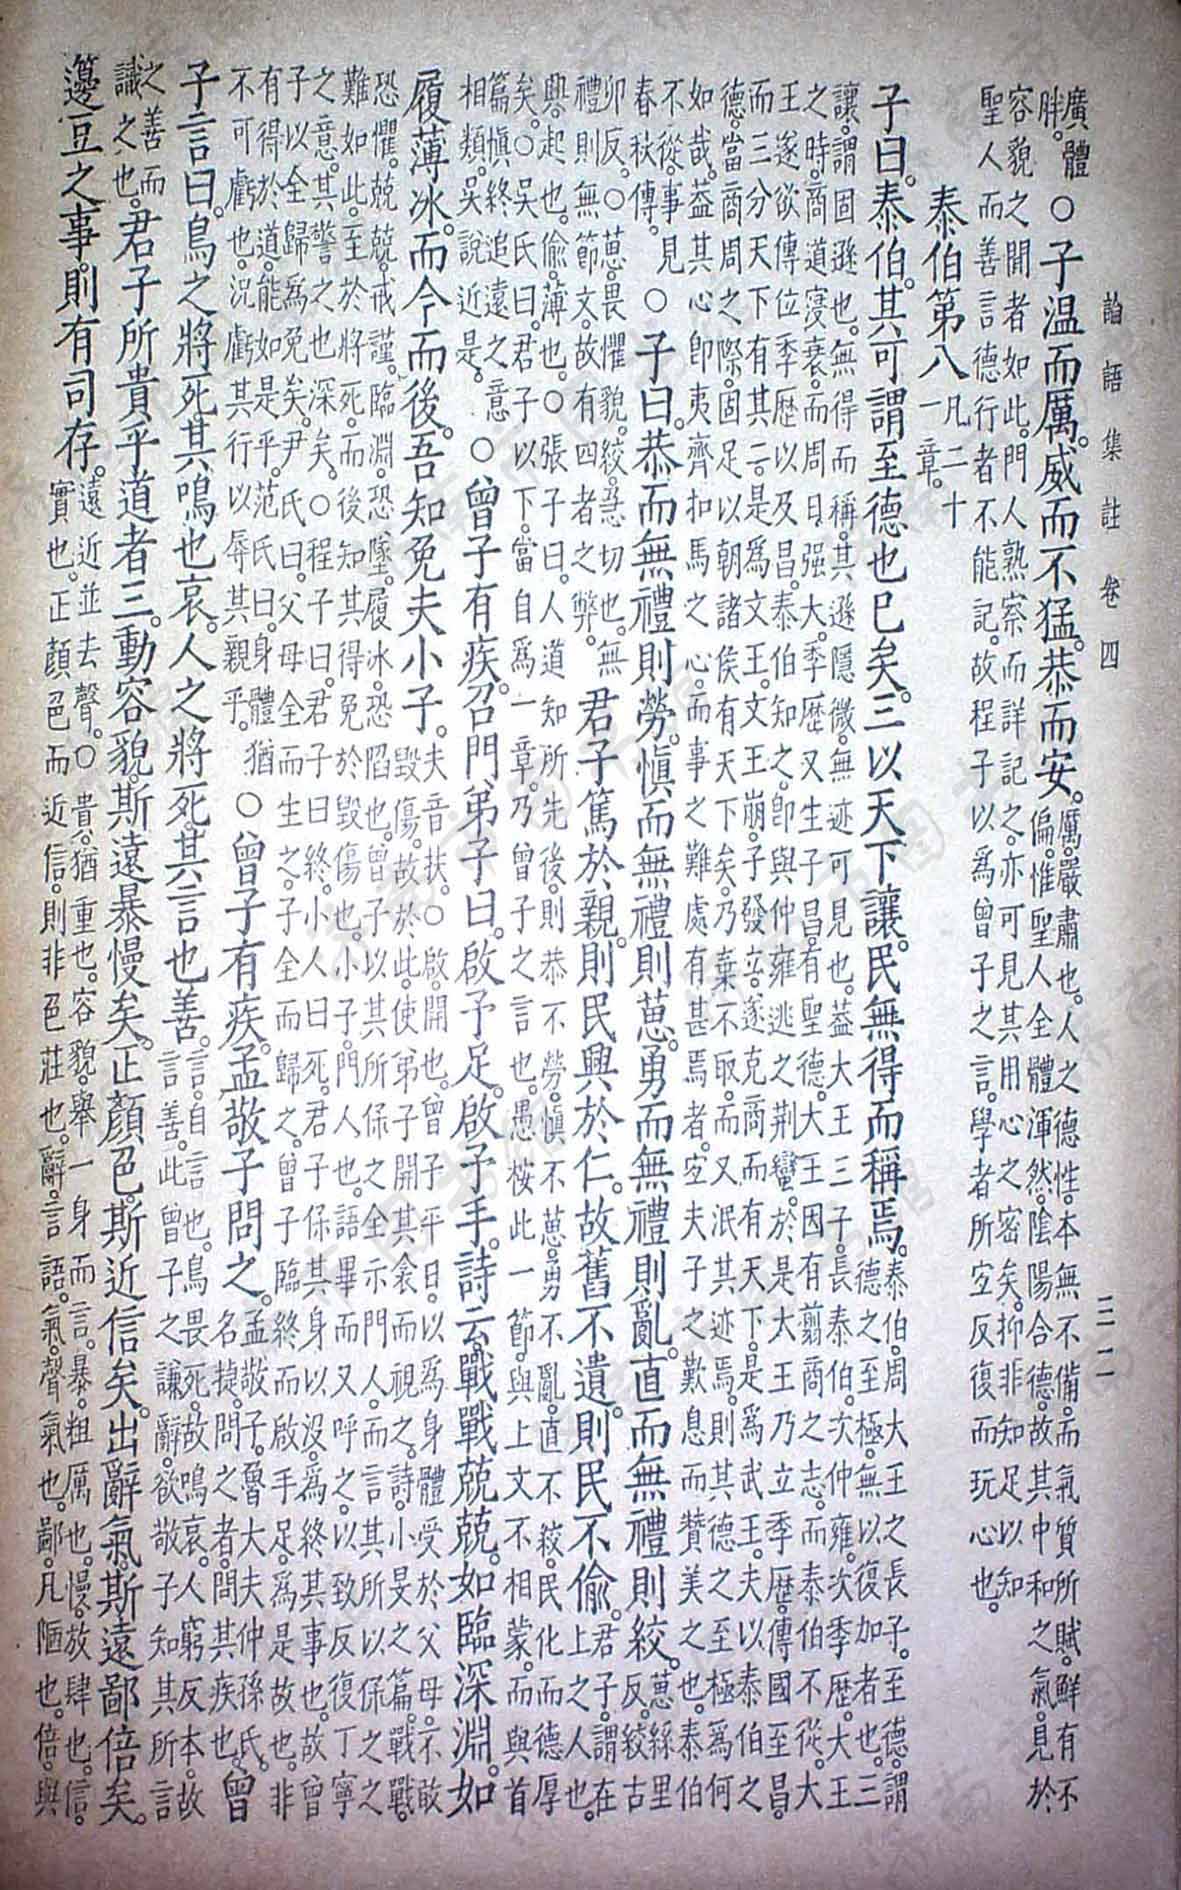 論語集註 卷四 三二
廣體
胖。
○子温而厲。威而不猛。恭而安。
厲。嚴肅也。人之德性。本無不備。而氣質所賦。鮮有不
偏。惟聖人全體渾然。陰陽合德。故其中和之氣。見於
容貌之閒者如此。門人熟察而詳記之。亦可見其用心之密矣。抑非知足以知
聖人而善言德行者不能記。故程子以爲曾子之言。學者所宜反復而玩心也。
泰伯第八
凡二十
一章。
子曰。泰伯。其可謂至德也已矣。三以天下讓。民無得而稱焉。
泰伯。周大王之長子。至德。謂
德之至極。無以復加者也。三
讓。謂固遜也。無得而稱。其遜隱微。無迹可見也。蓋大王三子。長泰伯。次仲雍。次季歷。大王
之時。商道寖衰。而周日强大。季歷又生子昌。有聖德。大王因有翦商之志。而泰伯不從。大
王遂欲傳位季歷以及昌。泰伯知之。卽與仲雍逃之荆蠻。於是大王乃立季歷。傳國至昌。
而三分天下有其二。是爲文王。文王崩。子發立。遂克商而有天下。是爲武王。夫以泰伯之
德。當商周之際。固足以朝諸侯有天下矣。乃棄不取。而又泯其迹焉。則其德之至極爲何
如哉。蓋其心卽夷齊扣馬之心。而事之難處有甚焉者。宜夫子之歎息而贊美之也。泰伯
不從。事見
春秋傳。
○子曰。恭而無禮則勞。愼而無禮則葸。勇而無禮則亂。直而無禮則絞。
葸絲里
反。絞古
卯反。○葸。畏懼貌。絞。急切也。無
禮則無節文。故有四者之弊。
君子篤於親。則民興於仁。故舊不遺。則民不偷。
君子。謂在
上之人也。
興。起也。偷。薄也。○張子曰。人道知所先後。則恭不勞。愼不葸。勇不亂。直不絞。民化而德厚
矣。○吳氏曰。君子以下。當自爲一章。乃曾子之言也。愚桉此一節。與上文不相蒙。而與首
篇愼終追遠之意
相類。吳說近是。
○曾子有疾。召門弟子曰。啟予足。啟予手。詩云。戰戰兢兢。如臨深淵。如
履薄冰。而今而後。吾知免夫小子。
夫音扶。○啟。開也。曾子平日。以爲身體受於父母。不敢
毀傷。故於此。使弟子開其衾而視之。詩。小旻之篇。戰戰。
恐懼。兢兢。戒謹。臨淵。恐墜。履冰。恐陷也。曾子以其所保之全示門人。而言其所以保之之
難如此。至於將死。而後知其得免於毀傷也。小子。門人也。語畢而又呼之。以致反復丁寧
之意。其警之也深矣。○程子曰。君子曰終。小人曰死。君子保其身以沒。爲終其事也。故曾
子以全歸爲免矣。尹氏曰。父母全而生之。子全而歸之。曾子臨終而啟手足。爲是故也。非
有得於道。能如是乎。范氏曰。身體猶
不可虧也。況虧其行以辱其親乎。
○曾子有疾。孟敬子問之。
孟敬子。魯大夫仲孫氏。
名捷。問之者。問其疾也。
曾
子言曰。鳥之將死。其鳴也哀。人之將死。其言也善。
言。自言也。鳥畏死。故鳴哀。人窮反本。故
言善。此曾子之謙辭。欲敬子知其所言
之善而
識之也。
君子所貴乎道者三。動容貌。斯遠暴慢矣。正顏色。斯近信矣。出辭氣。斯遠鄙倍矣。
籩豆之事。則有司存。
遠近並去聲。○貴。猶重也。容貌。舉一身而言。暴。粗厲也。慢。放肆也。信。
實也。正顏色而近信。則非色莊也。辭。言語。氣。聲氣也。鄙。凡陋也。倍。與